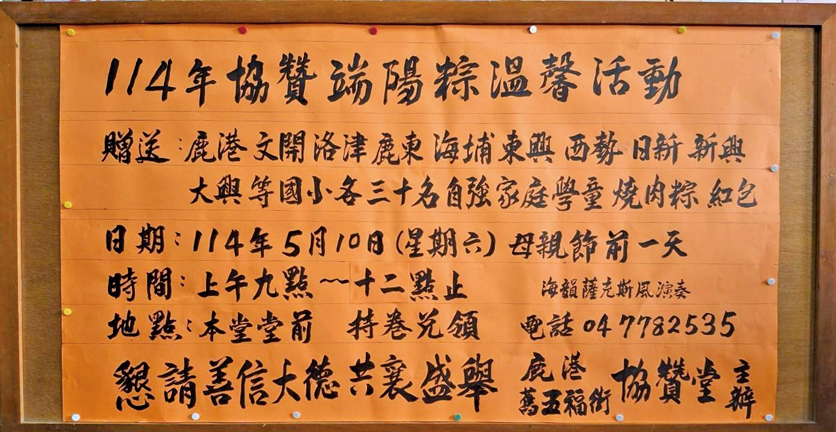 114年協贊端陽粽溫馨活動
贈送:鹿港 文開 洛津 鹿東 海埔 東興 西勢 日新 新興
大興等國小各三十名自強家庭學童 燒肉粽 紅包
日期:114年5月10日(星期六)母親節前一天
時間:上午九點~十二點止 海韻薩克斯風演奏
地點:本堂堂前 持卷兌領 電話 04 7782535
懇請善信大德共襄盛舉 鹿港 五福街 協贊堂 主辦